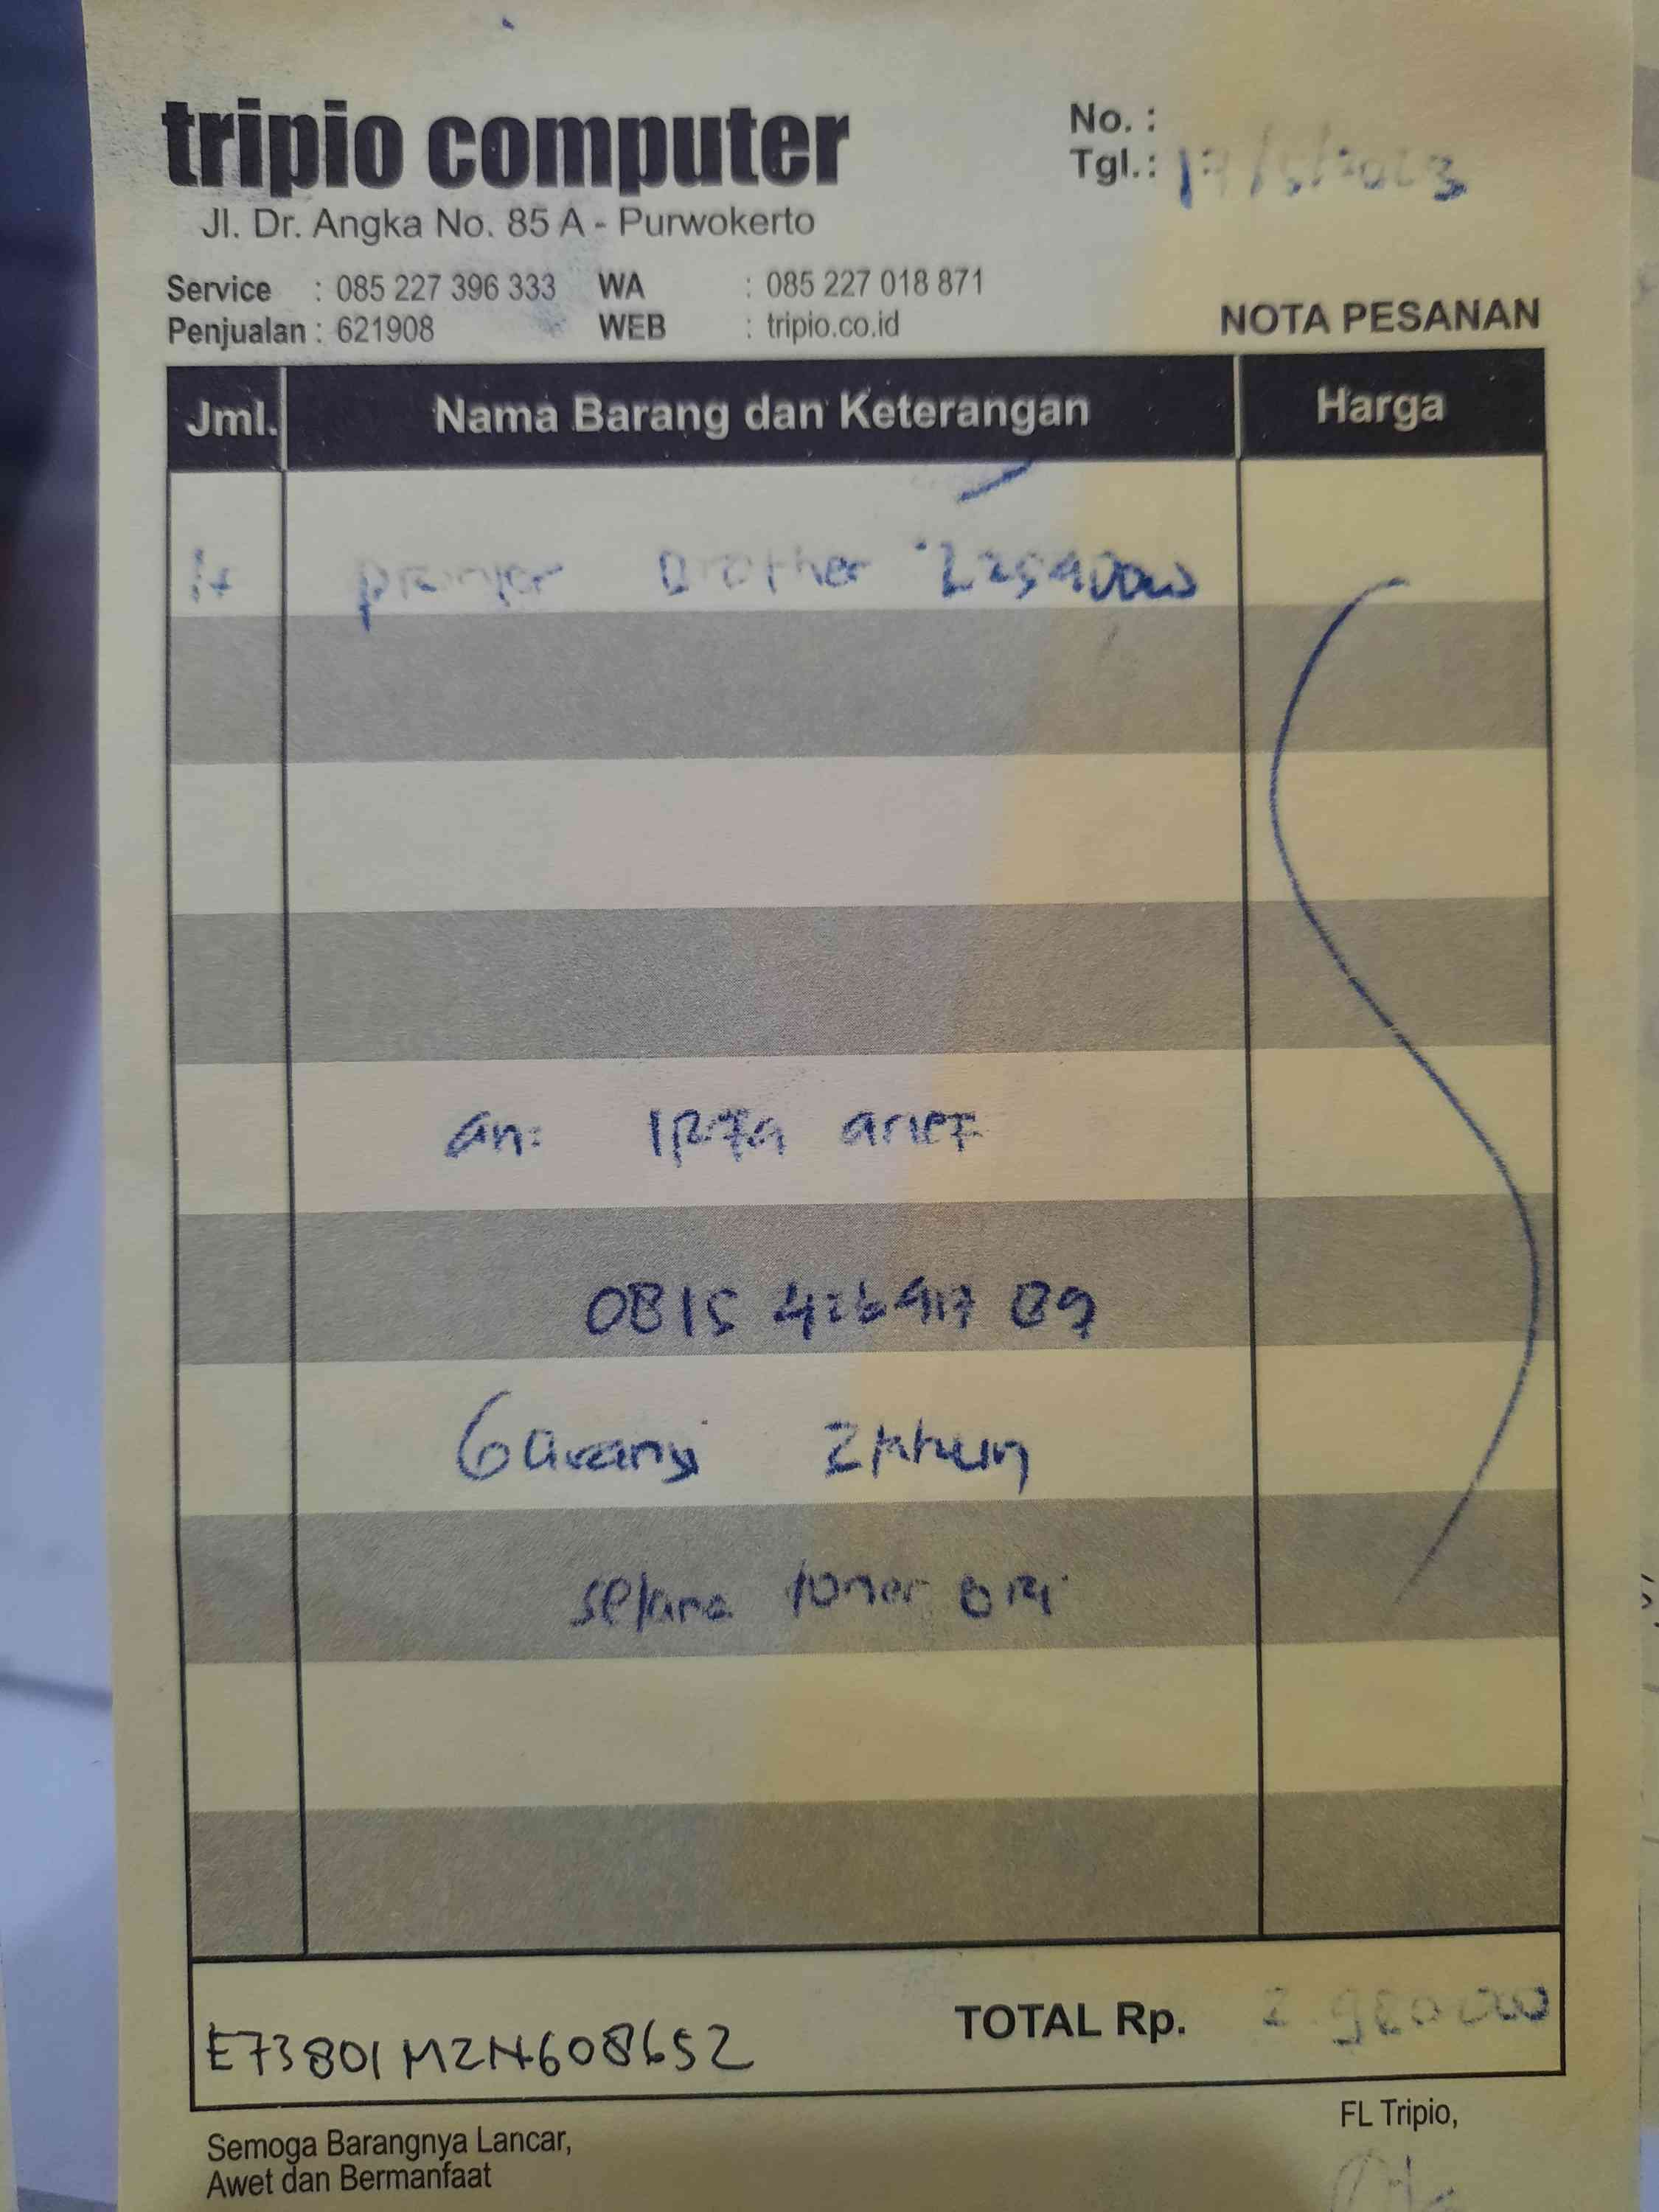 tripio computer
Jl. Dr. Angka No. 85 A - Purwokerto
No. :
Tgl.: 17/5/2023
Service : 085 227 396 333 WA : 085 227 018 871
Penjualan : 621908 WEB : tripio.co.id
NOTA PESANAN
Jml. Nama Barang dan Keterangan Harga
printer Brother L2540DW
an: arief
0815
Garansi 2 tahun
toner ori
E73801M2N608652
TOTAL Rp. 2.980000
FL Tripio,
Semoga Barangnya Lancar,
Awet dan Bermanfaat